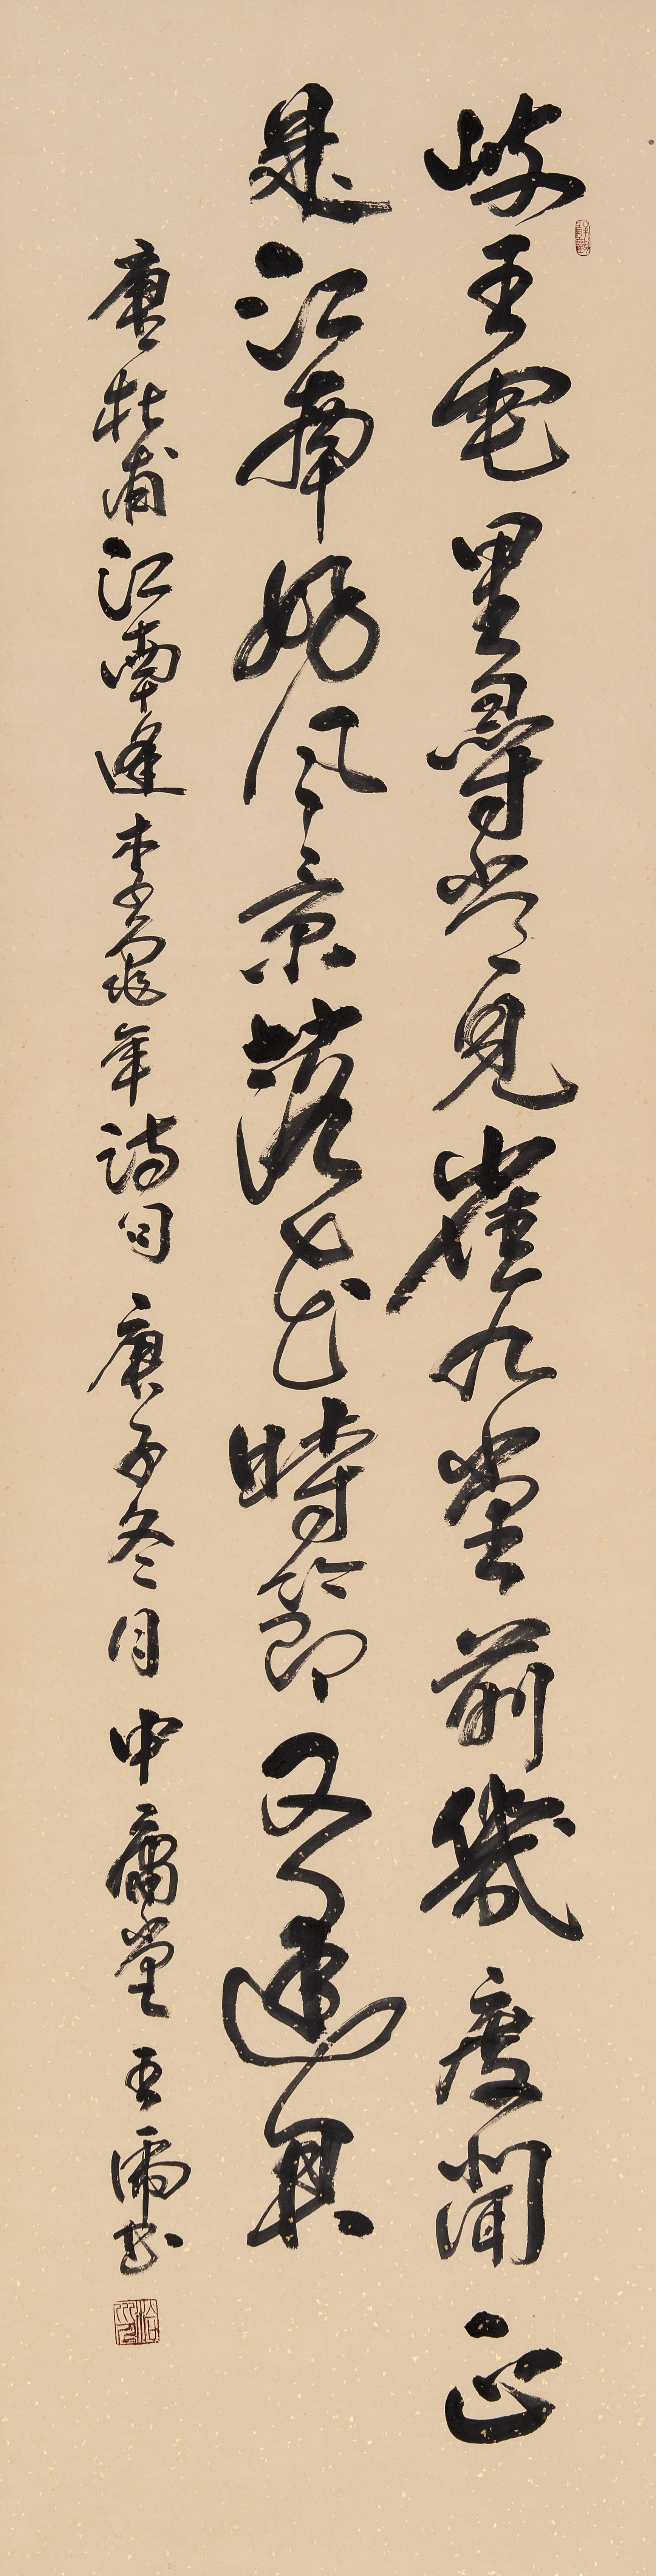 岐王宅里尋常見崔九堂前幾度聞正
是江南好風景落花時節又逢君
唐杜甫江南逢李龜年詩句 庚子冬月 中庸堂 王 书